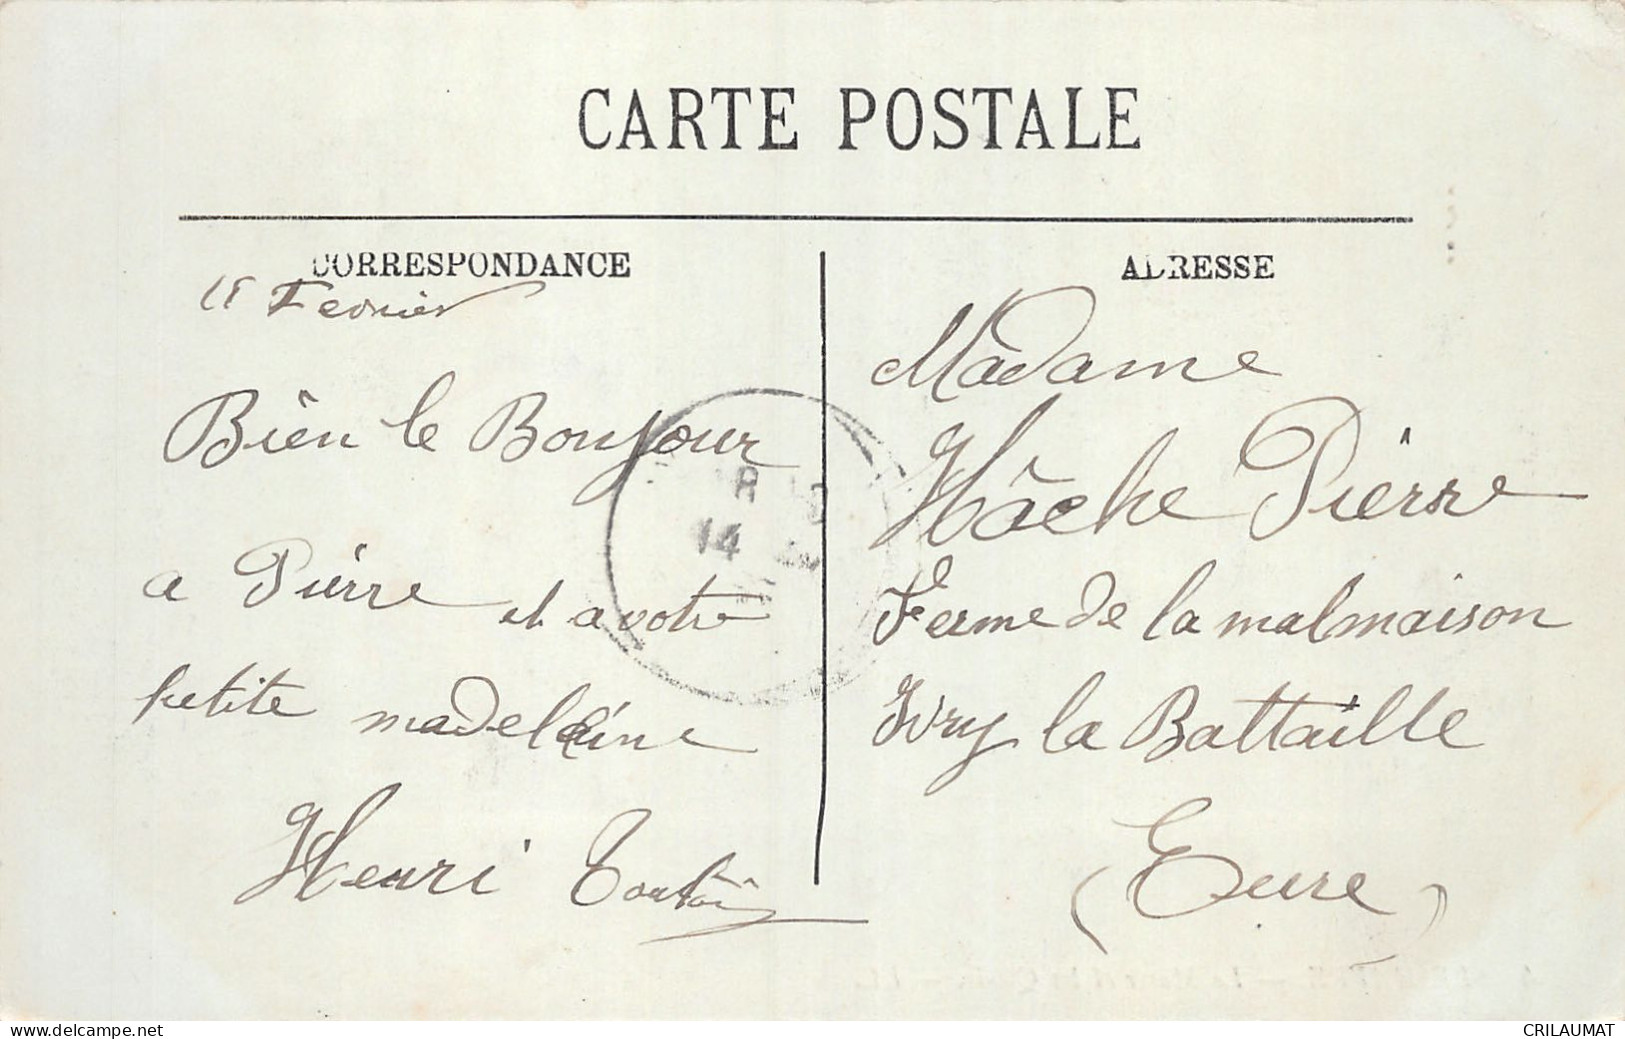 CARTE POSTALE
CORRESPONDANCE
Fevrier
Bien le Bonjour
a Pierre et a votre
petite madeleine
Henri
ADRESSE
Madame
Hâche Pierre
Ferme de la malmaison
Ivry la Battaille
(Eure)
14
www.delcampe.net
CRILAUMAT